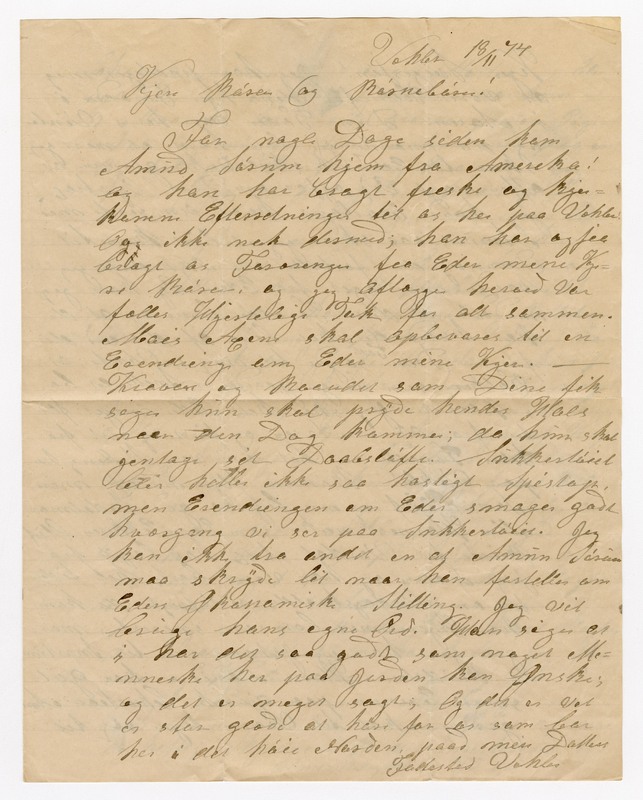 Vahler 18/11 74
Kjere Børn Og Børnebørn!
For nogle Dage siden kom
Amund Sørum hjem fra Amerika!
og han har bragt freske og kjer-
komne Efterretninger til os her paa Vahler.
Og ikke nok dermed; han har ogsaa
bragt os Foræringer fra Eder mine Kje-
re Børn, og jeg aflægge herved vor
fælles Hjertelige Tak for alt sammen.
skal opbevares til en
Erendring om Eder mine Kjere. —
Kraven og som Dine fik
siger hun skal pryde hendes Hals
naar den Dag kommer, da hun skal
gentage sit Daabsløfte. Sukkertøiet
holler ikke saa hastigt op,
men Erendringen om Eder smager godt
hvergang vi ser paa Sukkertøiet. Jeg
kan ikke tro andet en at Amun Sørum
maa skryde lit naar han forteller om
Eders Økonamiske Stilling. Jeg vil
bruge hans egne Ord. Han siger at
i har det saa godt som noget Me-
nneske her paa Jorden kan Ønske,
og det er meget sagt; Og det er vel
en stor glæde at høre for os som bor
her i det høie Norden, paa min Datters
Fødested Vahler